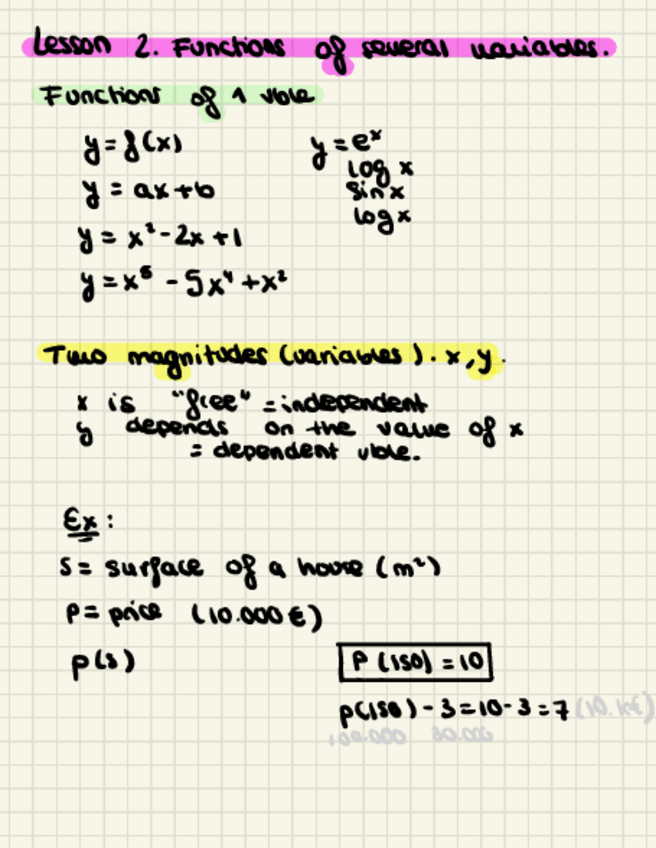 Lesson 2. Functions of several variables.
Functions of 1 vble
y = f(x)
y = ax + b
y = x² - 2x + 1
y = x⁵ - 5x⁴ + x²
y = eˣ
log x
sin x
log x
Two magnitudes (variables). x, y.
x is "free" = independent
y depends on the value of x
= dependent vble.
Ex:
S = surface of a house (m²)
P = price (10.000 €)
p(s)
P (150) = 10
p(150) - 3 = 10 - 3 = 7 (10.k€)
100.000 30.000